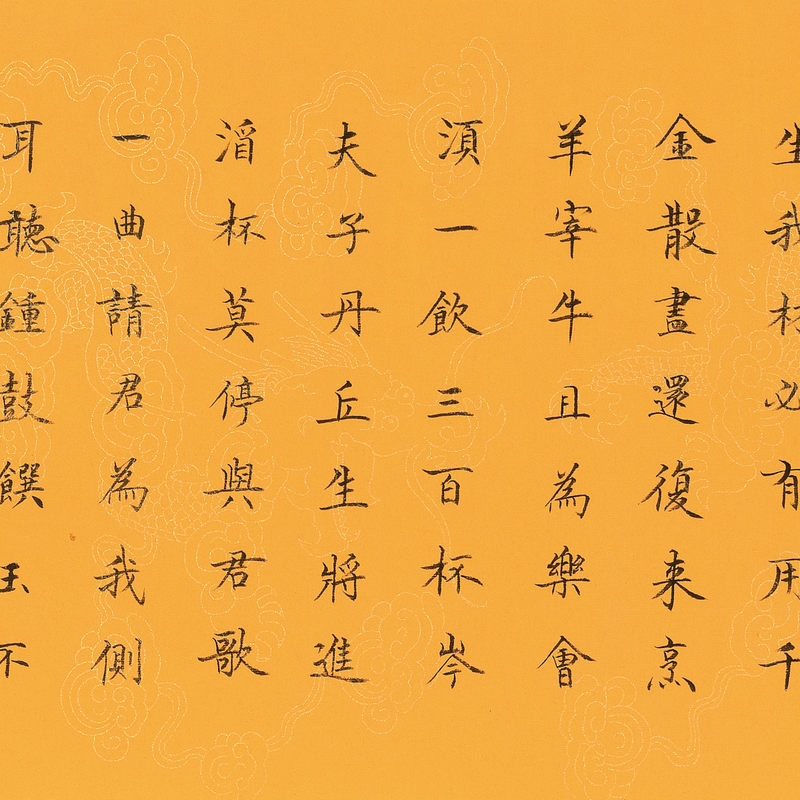 生我材必有用千
金散盡還復来烹
羊宰牛且為樂會
湏一飲三百杯岑
夫子丹丘生將進
酒杯莫停與君歌
一曲請君為我側
耳聽鍾鼓饌玉不